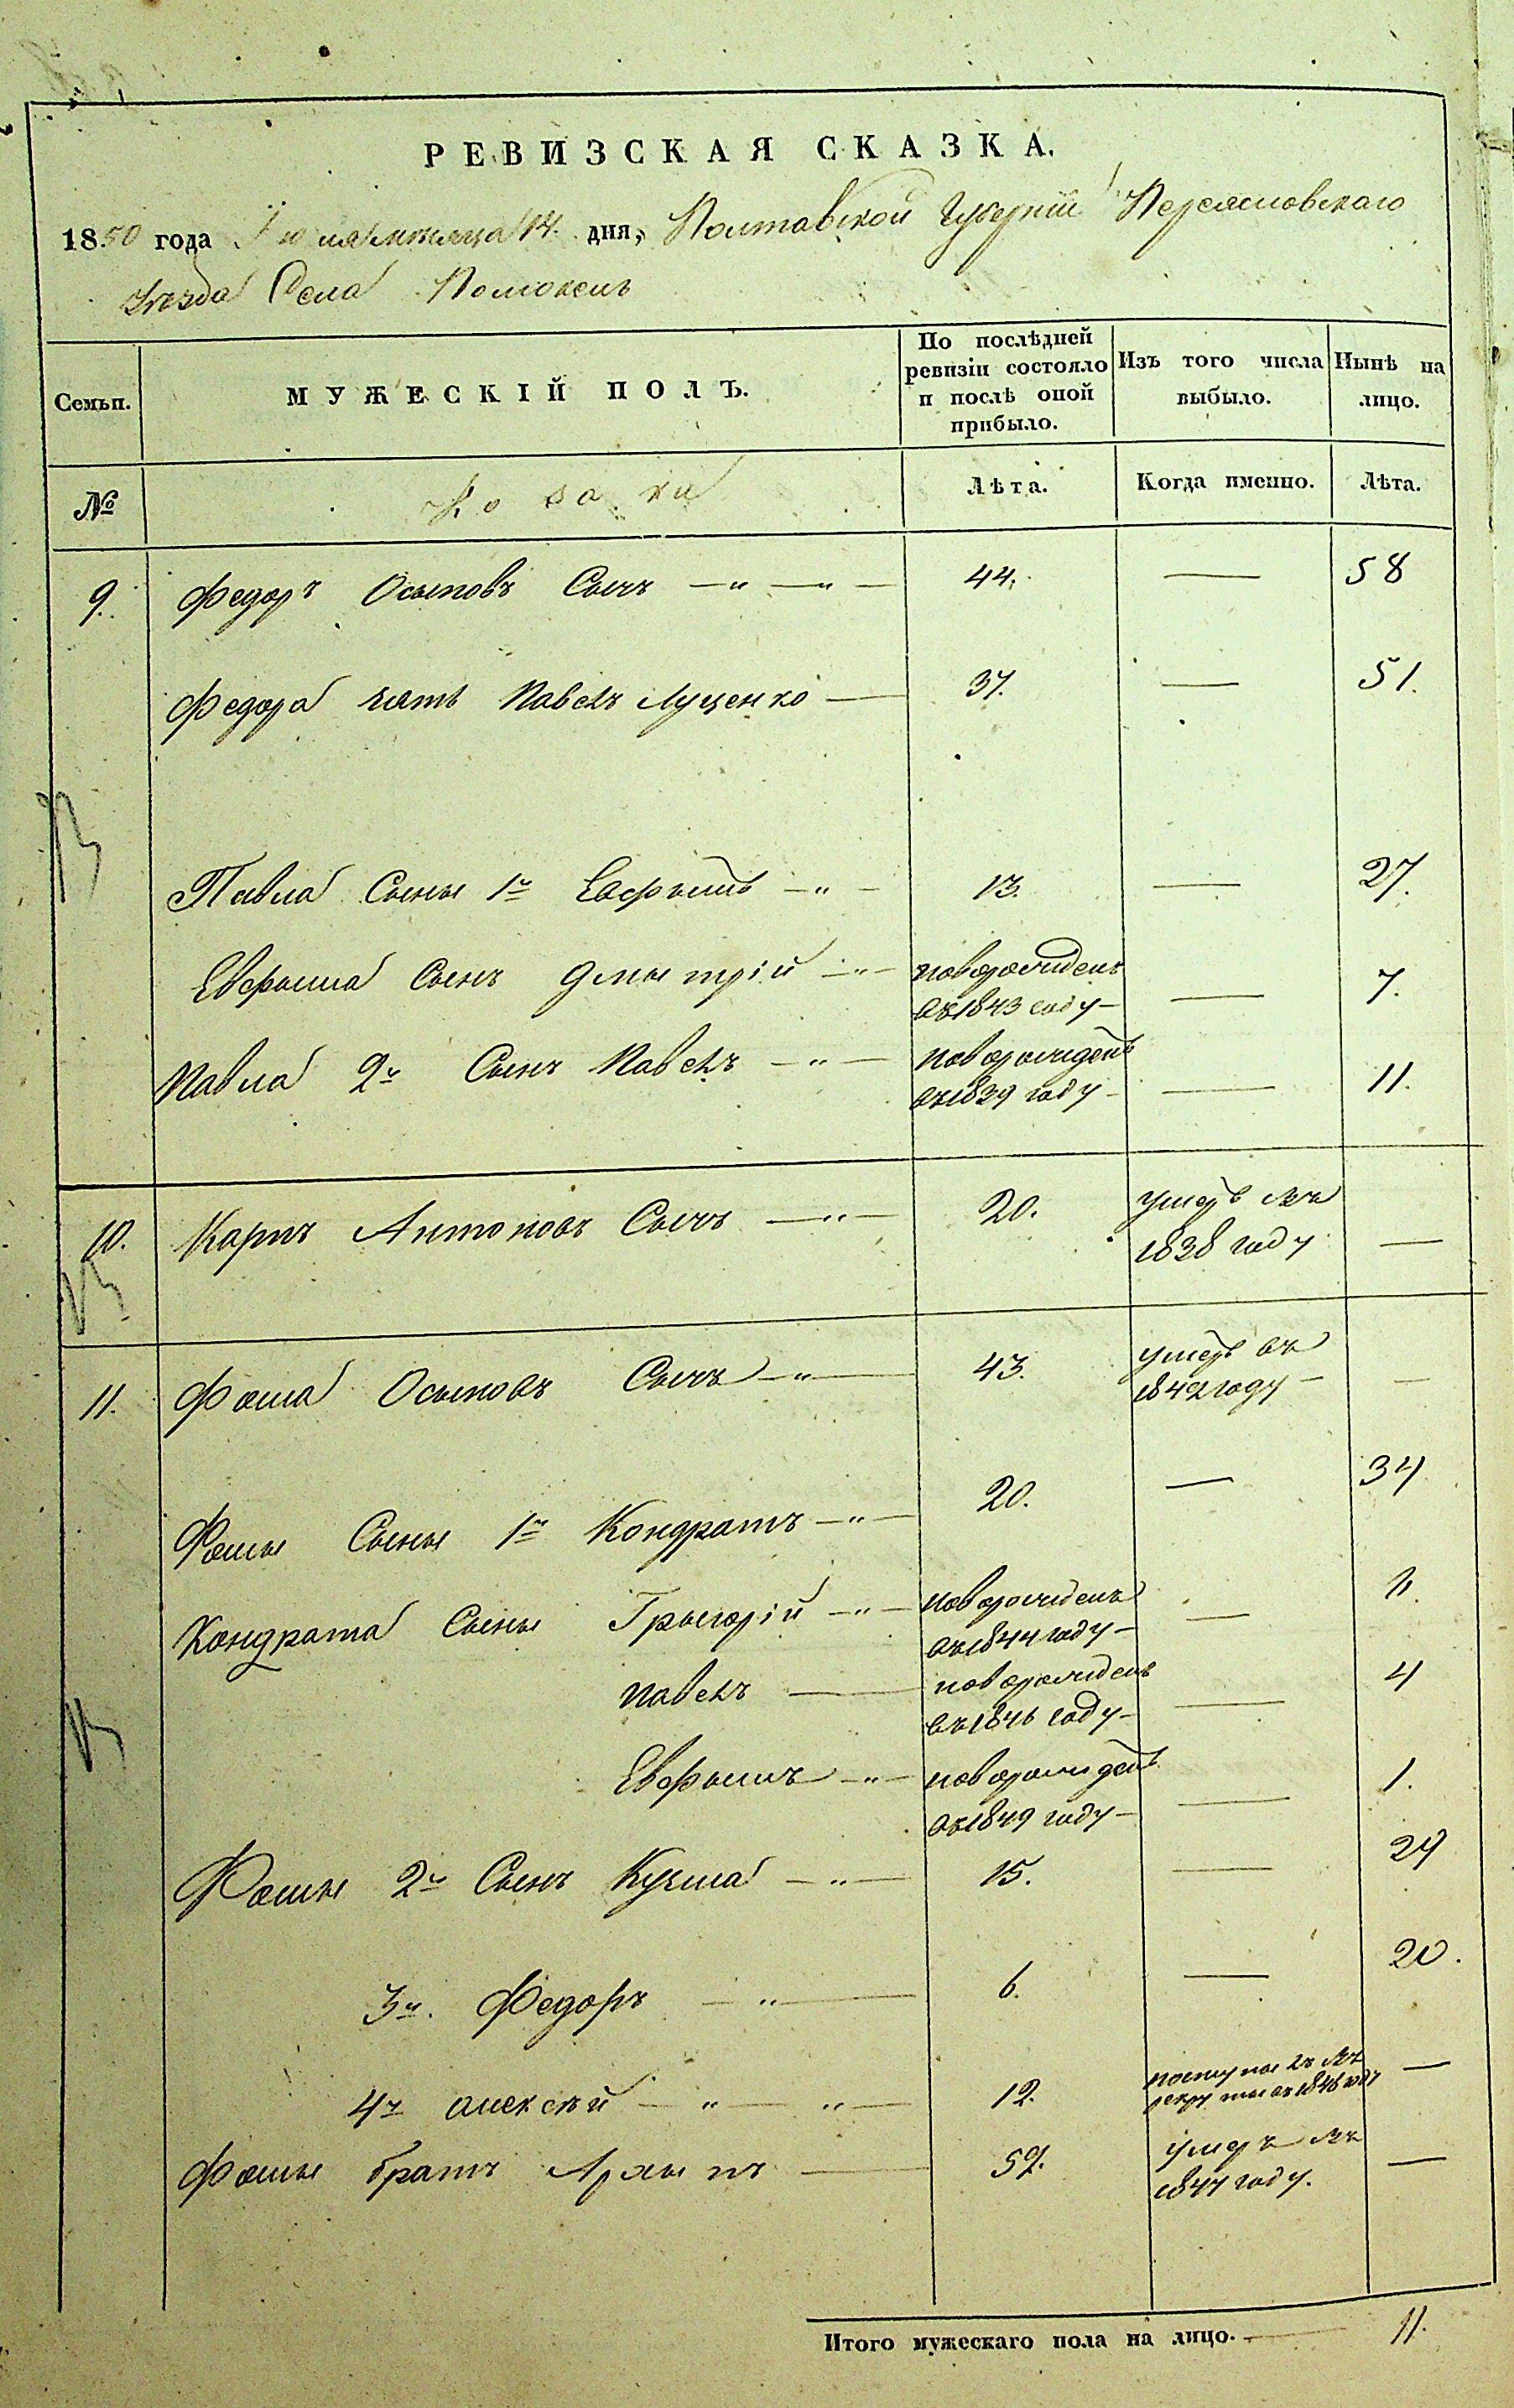 РЕВИЗСКАЯ СКАЗКА.
1850 года Іюля месяца 14 дня, Полтавской Губерніи Переясловскаго
Уѣзда Села Помоклъ
Семьи.
МУЖЕСКІЙ ПОЛЪ.
По послѣдней ревизіи состояло и послѣ оной прибыло.
Изъ того числа выбыло.
Нынѣ на лицо.
№
Козаки
Лѣта.
Когда именно.
Лѣта.
9. Федоръ Осиповъ Сычъ 44. — 58
Федора зять Павелъ Луценко — 37. — 51.
Павла Сыны 1й Ефрымъ 13. — 27.
Евфрыма Сынъ Дмытрій новорожденъ — 7.
въ 1843 году —
Павла 2й Сынъ Павелъ новорожденъ — 11.
въ 1839 году —
10. Карпъ Антоновъ Сычъ 20. умеръ въ
1838 году —
11. Фома Осыповъ Сычъ 43. умеръ въ
1842 году — —
Фомы Сыны 1й Кондратъ 20. — 34
Кондрата Сыны Грыгорій новорожденъ —
въ 1844 году —
Павелъ — новорожденъ — 4
въ 1846 году —
Евфрымъ новорожденъ — 1.
въ 1849 году —
Фомы 2й Сынъ Кузьма 15. — 29
3й. Федоръ 6. — 20.
4й Алексѣй 12. поступилъ въ —
рекруты въ 1848 году
Фомы братъ Архыпъ — 52. умеръ въ —
1847 году.
Итого мужескаго пола на лицо. — 11.